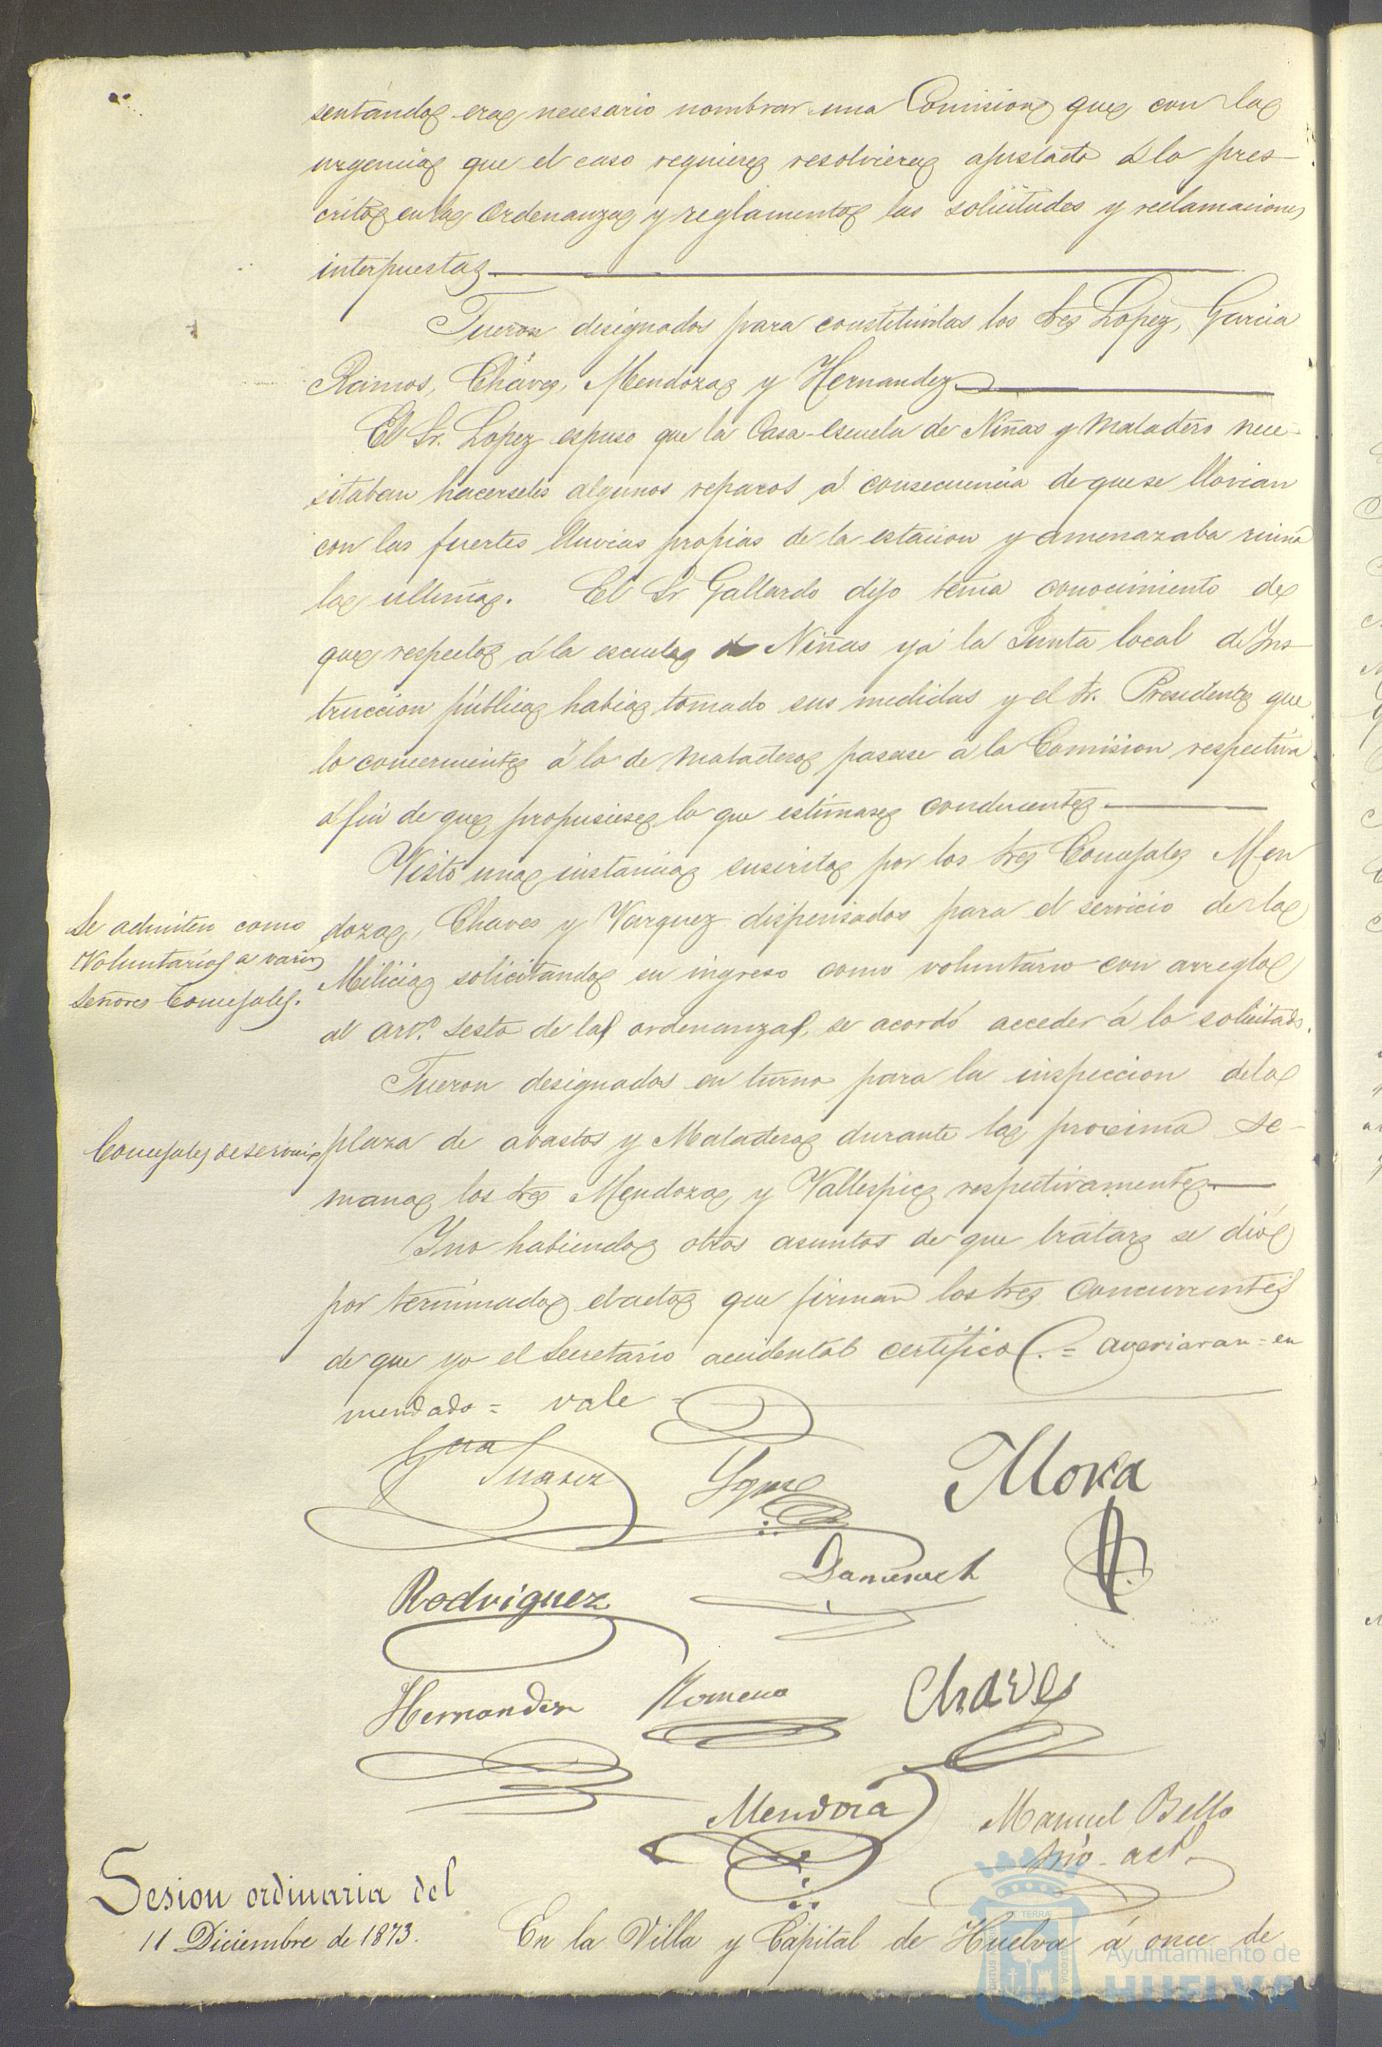 sentándose era necesario nombrar una Comision que con la
urgencia que el caso requiere resolviera ajustado á lo pres-
crito en las Ordenanzas y reglamentos las solicitudes y reclamaciones
interpuestas
Fueron designados para constituirlas los Sres Lopez, Garcia
Ramos, Cháves, Mendoza y Hernandez
El Sr. Lopez espuso que la Casa-escuela de Niñas y Matadero nece-
sitaban hacerseles algunos reparos á consecuencia de que se llovian
con las fuertes lluvias propias de la estacion y amenazaba ruina
la ultima. El Sr Gallardo dijo tenia conocimiento de
que respecto á la escuela de Niñas ya la Junta local de Ins-
truccion pública habia tomado sus medidas y el Sr. Presidente que
lo concerniente á lo de Matadero pasase á la Comision respectiva
á fin de que propusiese lo que estimase conducente
Visto una instancia suscrita por los Sres Concejales Men
Se admiten como
Voluntarios a varios
Señores Concejales.
doza, Chaves y Vazquez dispensados para el servicio de la
Milicia solicitando su ingreso como voluntario con arreglo
al artº. sesto de las ordenanzas, se acordó acceder á lo solicitado.
Fueron designados en turno para la inspeccion de la
Concejales de servicio
plaza de abastos y Matadero durante la proxima se-
mana los Sres Mendoza y Vallespin respectivamente
Y no habiendo otros asuntos de que tratar se dió
por terminado el acto que firman los Sres concurrentes
de que yo el Secretario accidental certifico. = averiaran = en
mendado = vale =
Gra
Suarez
Mora
Rodriguez
Hernandez Romero Chaves
Mendoza Manuel Bello
Srio actl.
Sesion ordinaria del
11 Diciembre de 1873.
En la Villa y Capital de Huelva á once de
Ayuntamiento de
HUELVA